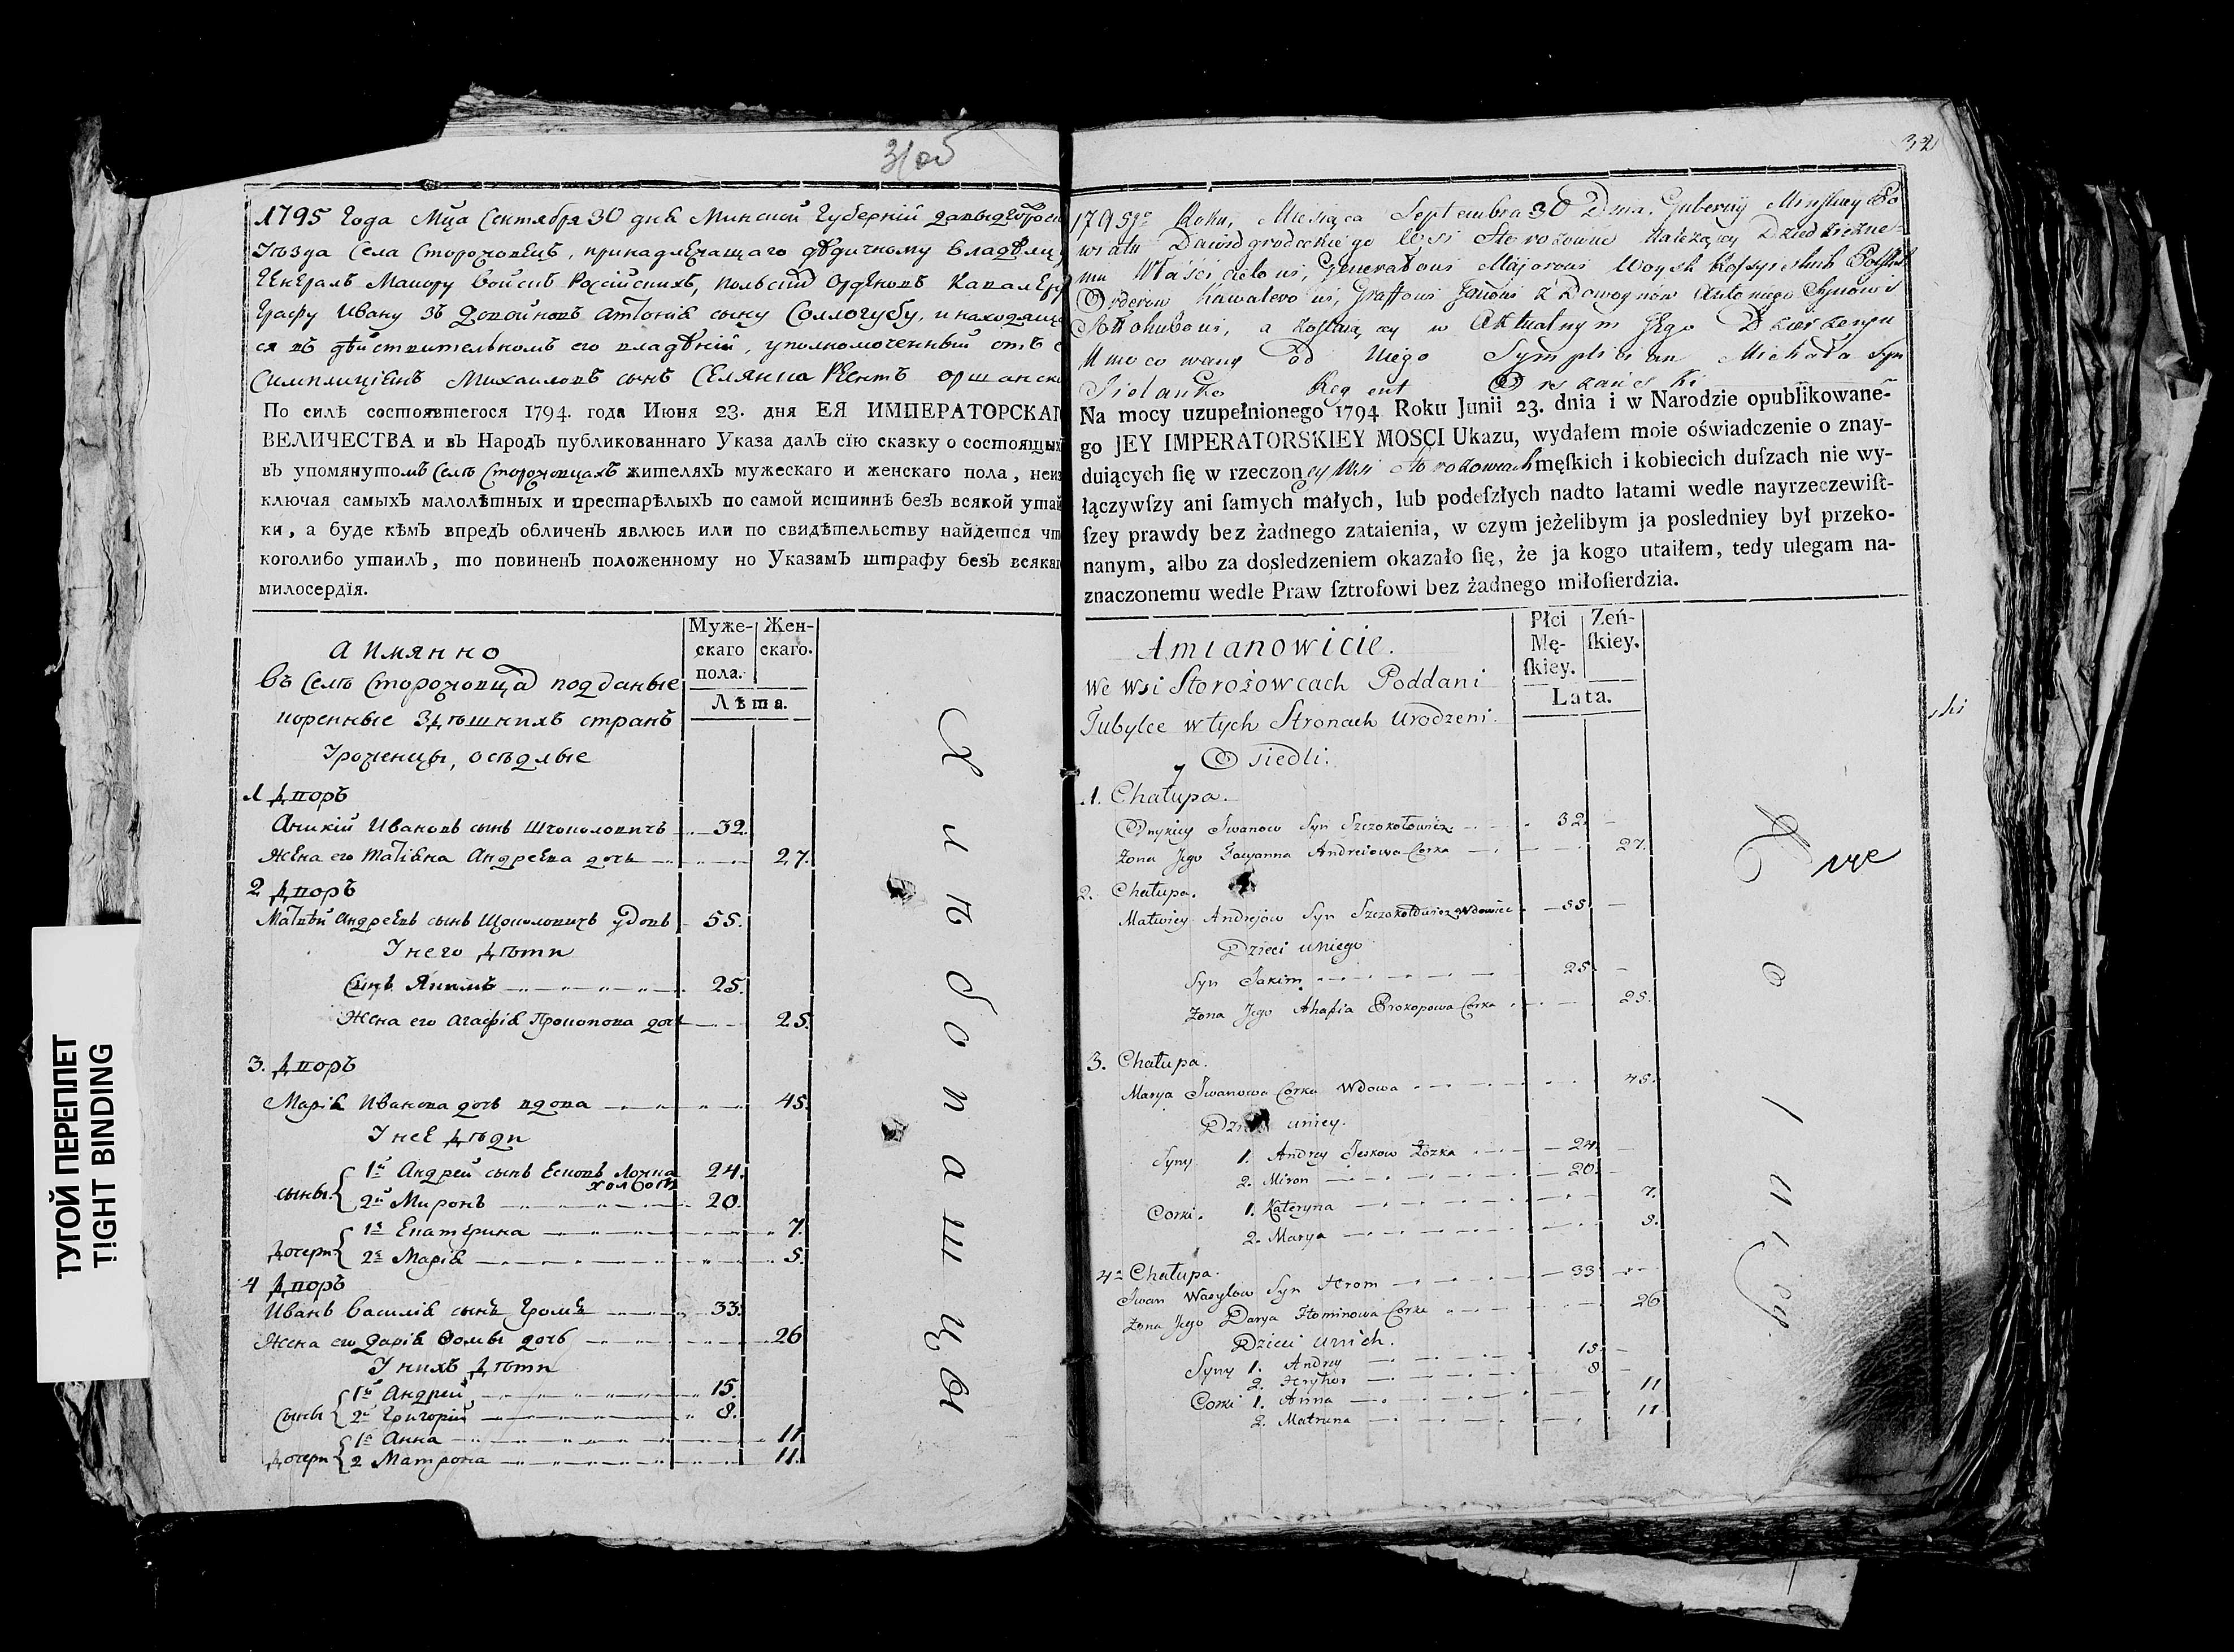 31об
1795 Года Мца Сентября 30 дня Минской Губерніи
Уѣзда Села Сторожовецъ, принадлежащаго дѣдичному Владѣлцу
Генералъ Маиору Войскъ Россійскихъ, польскихъ Орденовъ Кавалеру
Графу Ивану зъ Довойновъ Антонія сыну Соллогубу, и находяща
ся въ дѣйствительномъ его владѣніи, уполномоченный отъ
Симплиціянъ Михаиловъ сынъ Селянка Регентъ Оршанск
По силѣ состоявшегося 1794. года Июня 23. дня ЕЯ ИМПЕРАТОРСКАГ
ВЕЛИЧЕСТВА и въ Народъ публикованнаго Указа далъ сїю сказку о состоящых
въ упомянутомъ Селѣ Сторожовцахъ жителяхъ мужескаго и женскаго пола, неиз
ключая самыхъ малолѣтных и престарѣлыхъ по самой истиннѣ безъ всякой утай
ки, а буде кѣмъ впредъ обличенъ явлюсь или по свидѣтельству найдется чт
коголибо утаилъ, то повиненъ положенному но Указамъ штрафу безъ всякаг
милосердїя.
Муже-
скаго
пола.
Жен-
скаго.
Лѣта.
а имянно
Въ Селѣ Сторожовцах подданые
коренные Здѣшнихъ странъ
Уроженцы, осѣдлые
1 Дворъ
Аникій Ивановъ сынъ Щоколовичъ 32.
Жена его Татіяна Андреева дочь 27.
2 Дворъ
Матвѣй Андреевъ сынъ Щоколовичъ удовъ 55.
У него Дѣти
Сынъ Якимъ 25.
Жена его Агафія Прокопова дочь 25.
3. Дворъ
Марія Иванова дочь вдова 45.
У нее Дѣти
сыны 1й Андрей сынъ Есковъ Ложка 24.
холост
2й Миронъ 20.
Дочери 1я Екатерина 7.
2я Марія 5.
4 Дворъ
Иванъ Василія сынъ Громъ 33.
Жена его Дарія Ѳомы дочь 26
У нихъ Дѣти
Сыны 1й Андрей 15.
2й Григорій 8.
Дочери 1я Анна 11
2 Матрона 11.
32
1795go Roku, Miesiąca Septembra 30 Dnia, Gubernij Minskiey Po
wiatu Dawidgrodeckiego Wsi Storozowiec Należący Dziedziczne-
mu Właścicielowi, Generałowi Majorowi Woysk Rossyiskich Polskich
Orderow Kawalerowi, Graffowi Janowi z Dowoynow Antoniego Synowi
Sołłohubowi, a zostaiący w Aktualnym Jego Dzierzeniu
Umocowany od Niego Symplician Michała Syn
Sielanko Regent Orszanski
Na mocy uzupełnionego 1794 Roku Junii 23. dnia i w Narodzie opublikowane-
go JEY IMPERATORSKIEY MOSCI Ukazu, wydałem moie oświadczenie o znay-
duiących ſię w rzeczoney Wsi Storozowcach męſkich i kobiecich duſzach nie wy-
łączywſzy ani ſamych małych, lub podeſzłych nadto latami wedle nayrzeczewiſt-
ſzey prawdy bez żadnego zataienia, w czym jeżelibym ja posledniey był przeko-
nanym, albo za dosledzeniem okazało ſię, że ja kogo utaiłem, tedy ulegam na-
znaczonemu wedle Praw ſztrofowi bez żadnego miłoſierdzia.
Płci
Mę-
ſkiey.
Zeń-
ſkiey.
Lata.
Amianowicie.
We wsi Storożowcach Poddani
Tubylce w tych Stronach Urodzeni
Osiedli.
1. Chałupa.
Onykiey Iwanow Syn Szczokołowicz 32.
Zona Jego Tacyanna Andreiowa Corka 27.
2. Chałupa.
Matwiey Andrejow Syn Szczokołowicz Wdowiec 55.
Dzieci u niego
Syn Jakim 25.
Zona Jego Ahafia Prokopowa Corka 25.
3. Chałupa.
Marya Iwanowa Corka Wdowa 45.
Dzieci u niey.
Syny 1. Andrey Jeskow Łożka 24.
2. Miron 20.
Corki. 1. Kateryna 7.
2. Marya 5.
4a Chałupa.
Iwan Wasylow Syn Hrom 33
Zona Jego Darya Hominowa Corka 26
Dzieci u nich.
Syny 1. Andrey 15
2. Hryhor 8
Corki 1. Anna 11
2. Matruna 11
ТУГОЙ ПЕРЕПЛЕТ
TIGHT BINDING